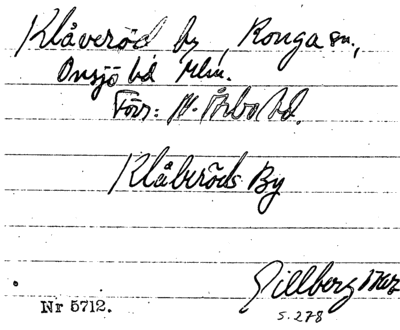 Klåveröd by, Konga sn.,
Onsjö hd Mlm.
Förr: N. Åsbo hd.
Klåberöds By
Gillberg 1767
s. 278
Nr 5712.